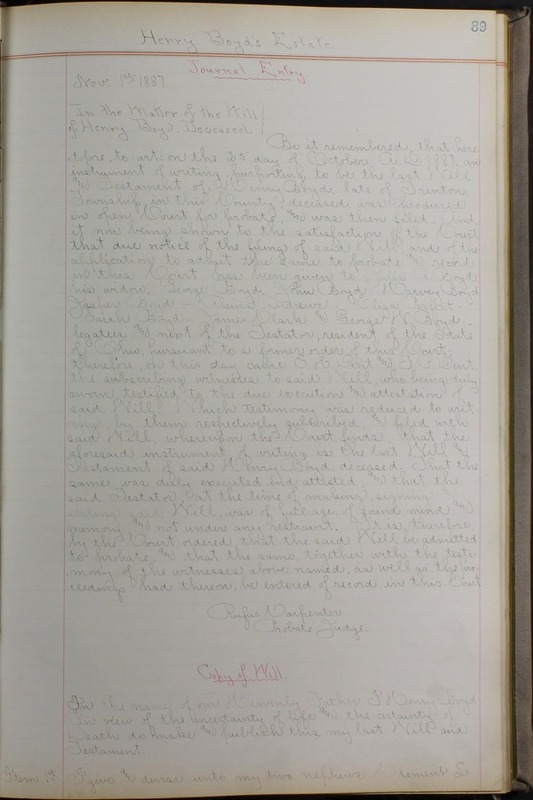 89
Henry Boyd's Estate.
Journal Entry.
Nov. 1st 1887.
In the Matter of the Will
of Henry Boyd. Deceased.
Be it remembered, that here
tofore, to wit: on the 25 day of October A.D. 1887 an
instrument of writing, purporting to be the last Will
and Testament of Henry Boyd, late of Trenton
Township in this County, deceased was produced
in open Court for probate and was then filed. And
it now being shown to the satisfaction of the Court
that due notice of the filing of said Will and of the
application to admit the same to probate and record
in this Court has been given to Boyd
his widow, George Boyd, John Boyd, Harvey Boyd
Boyd Andrews Eliza
Sarah Boyd James Clark & George W. Boyd.
legatees and next of the Testator, resident of the State
of Ohio, pursuant to a former order of this Court,
therefore, on this day came and
the subscribing witnesses to said Will, who being duly
sworn testified to the due execution and attestation of
said Will; Which testimony was reduced to writ
ing by them respectively subscribed, and filed with
said Will, whereupon the Court finds, that the
aforesaid instrument of writing is the last Will and
Testament of said Henry Boyd, deceased. That the
same was duly executed and attested; and that the
said Testator, at the time of making, signing
said Will, was of full age, of sound mind and
memory and not under any restraint. It is, therefore,
by the Court ordered that the said Will be admitted
to probate, and that the same, together with the testi
mony of the witnesses above named, as well as the pro
ceedings had thereon, be entered of record in this Court
Rufus Carpenter
Probate Judge.
Copy of Will.
In the name of our Heavenly Father I Henry Boyd
In view of the uncertainty of life and the certainty of
Death do make and publish this my last Will and
Testament.
Item 1st I give & devise unto my two nephews Clement &